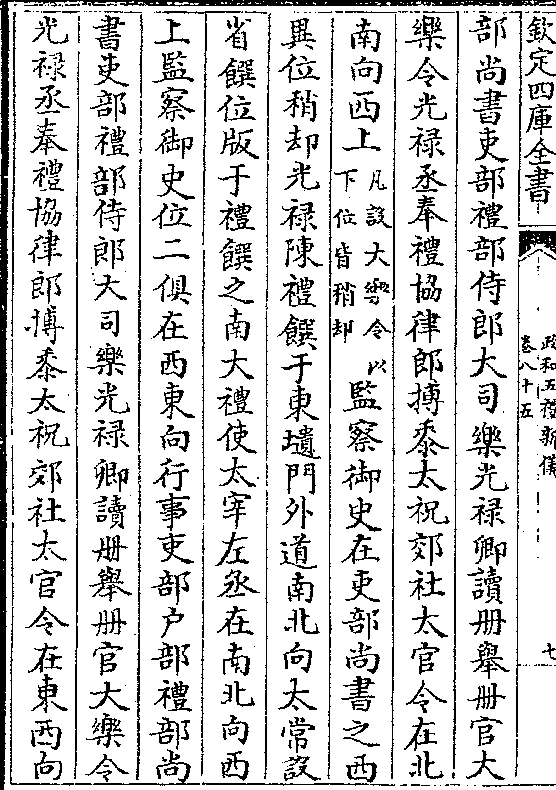 欽定四庫全書
政和五禮新儀
卷八十五
七
部尚書吏部禮部侍郎大司樂光禄卿讀册舉册官大
樂令光禄丞奉禮協律郎摶黍太祝郊社太官令在北
南向西上凡設大樂令以下位皆稍却監察御史在吏部尚書之西
異位稍却光禄陳禮饌于東壝門外道南北向太常設
省饌位版于禮饌之南大禮使太宰左丞在南北向西
上監察御史位二俱在西東向行事吏部户部禮部尚
書吏部禮部侍郎大司樂光禄卿讀册舉册官大樂令
光禄丞奉禮協律郎摶黍太祝郊社太官令在東西向